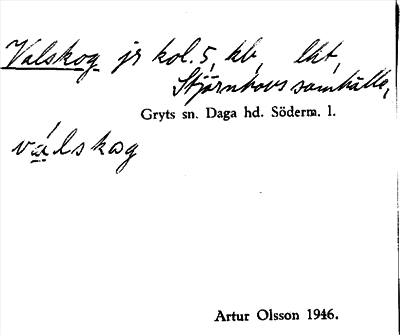 Valskog jr kol. 5, kb, lht,
Stjärnhovs samhälle,
Gryts sn. Daga hd. Söderm. l.
válskog
Artur Olsson 1946.